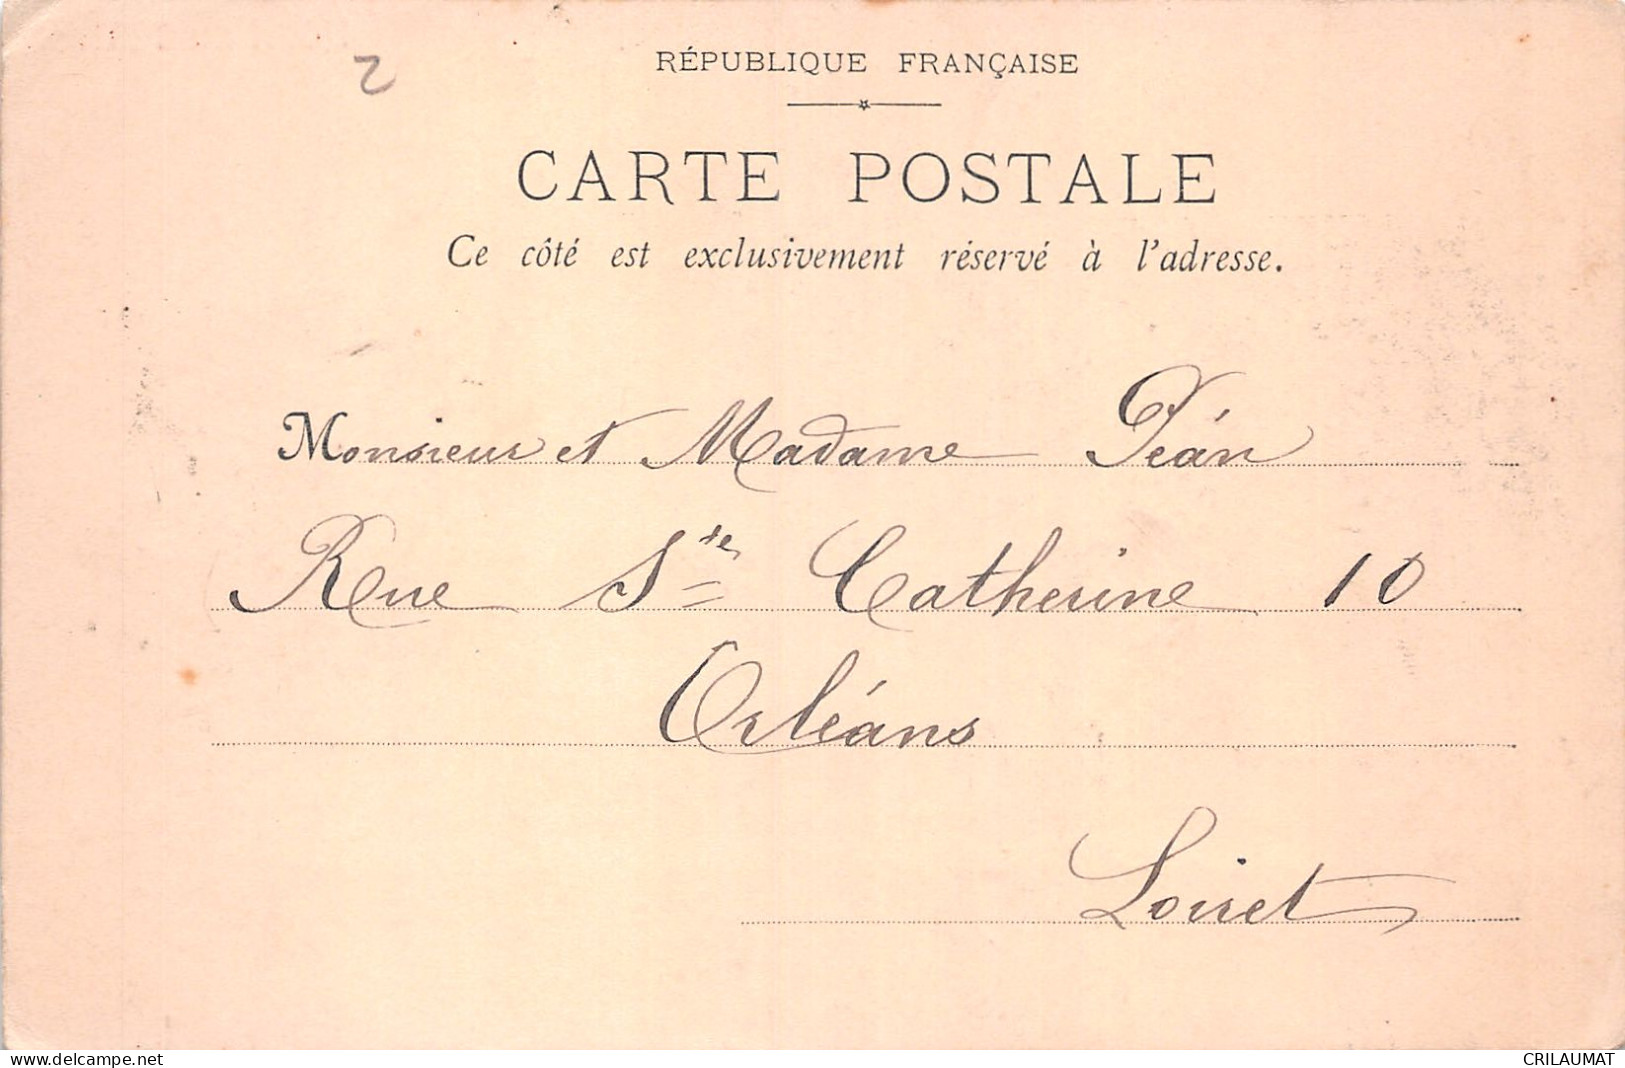 2
RÉPUBLIQUE FRANÇAISE
CARTE POSTALE
Ce côté est exclusivement réservé à l'adresse.
Monsieur et Madame Péan
Rue Ste Catherine 10
Orléans
Loiret
www.delcampe.net
CRILAUMAT